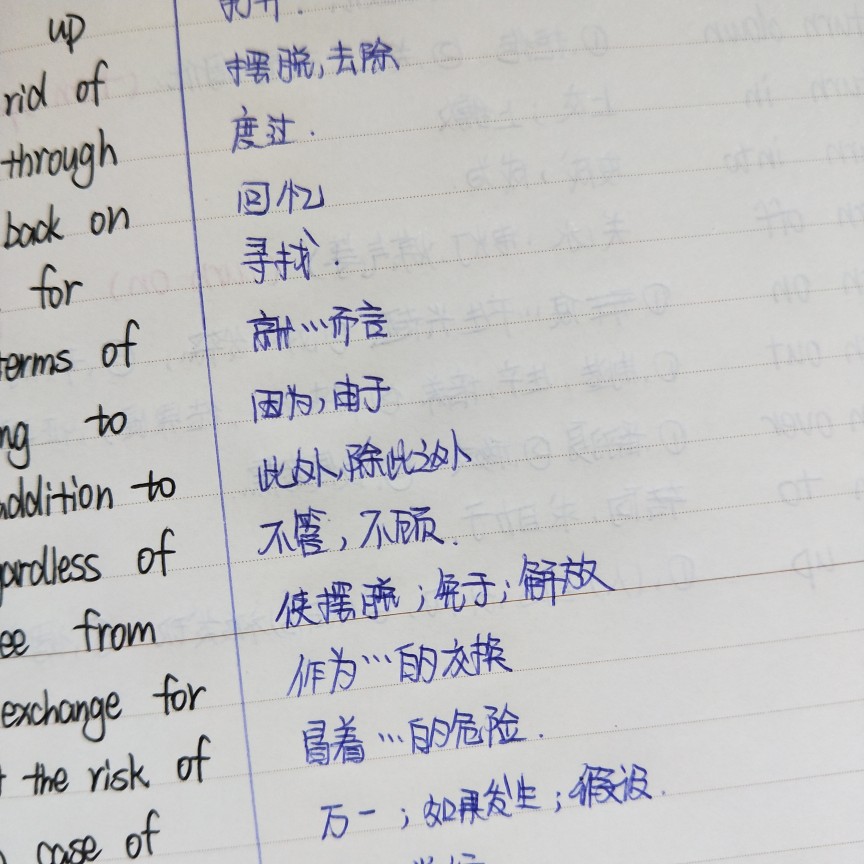 up
rid of 摆脱,去除
through 度过.
back on 回忆
for 寻找.
terms of 就…而言
ng to 因为,由于
addition to 此外,除此之外
gardless of 不管,不顾.
ee from 使摆脱;免于;解放
exchange for 作为…的交换
the risk of 冒着…的危险.
case of 万一;如果发生;假设.